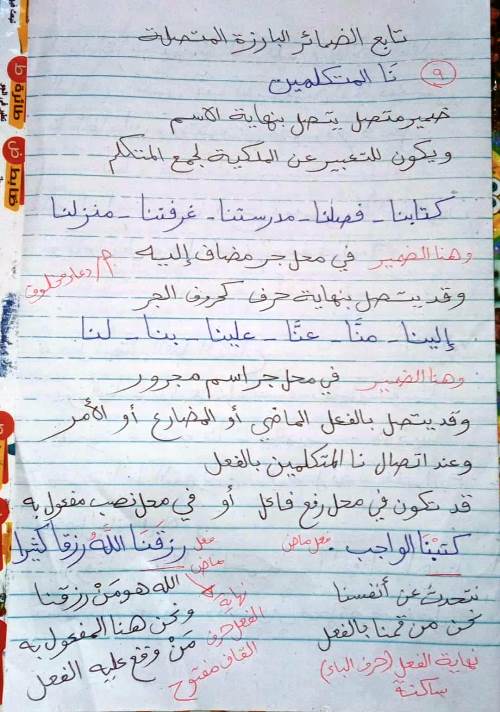 تابع الضمائر البارزة المتصلة
٩ نَا المتكلمين
ضمير متصل يتصل بنهاية الاسم
ويكون للتعبير عن الملكية لجمع المتكلم
كتابنا - فصلنا - مدرستنا - غرفتنا - منزلنا
وهنا الضمير في محل جر مضاف إليه
م/ دعاء مخلوف
وقد يتصل بنهاية حرف كحروف الجر
إلينا - منَّا - عنَّا - علينا - بنا - لنا
وهنا الضمير في محل جر اسم مجرور
وقد يتصل بالفعل الماضي أو المضارع أو الأمر
وعند اتصال نا المتكلمين بالفعل
قد تكون في محل رفع فاعل أو في محل نصب مفعول به
كتبْنَا الواجب . فعل ماض
نتحدث عن أنفسنا
نحن من قمنا بالفعل
نهاية الفعل (حرف الباء)
ساكنة
رزقَنَا اللَّهُ رزقا كثيرا
فعل ماض
الله هو مَنْ رزقنا
ونحن هنا المفعول به
مَنْ وقع عليه الفعل
نهاية
الفعل حرف
القاف مفتوح
طائرة ط
ضابط ض